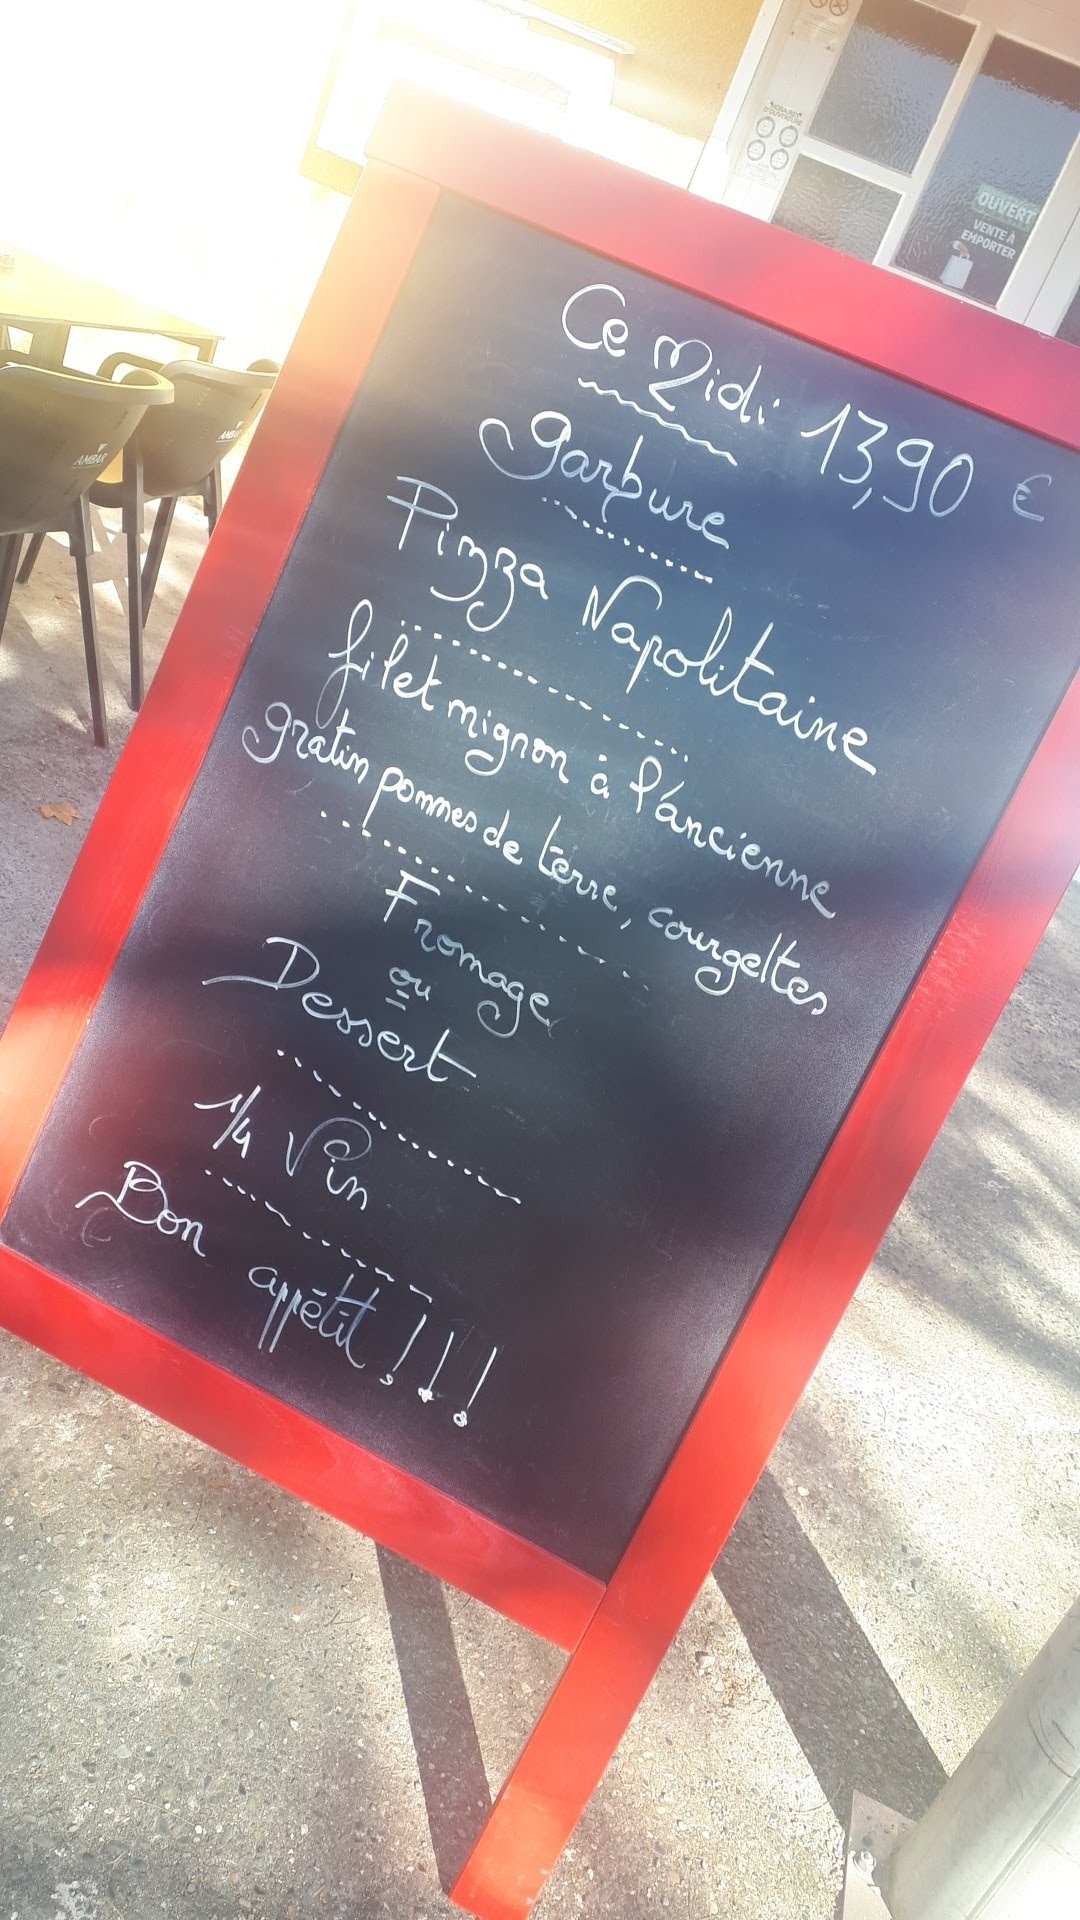 Ce Midi 13,90 €
garbure
Pizza Napolitaine
filet mignon à l'ancienne
gratin pommes de terre, courgettes
Fromage
ou
Dessert
1/4 Vin
Bon appétit!!!
HORAIRES
D'OUVERTURE
OUVERT
VENTE À
EMPORTER
AMBAR
AMBAR